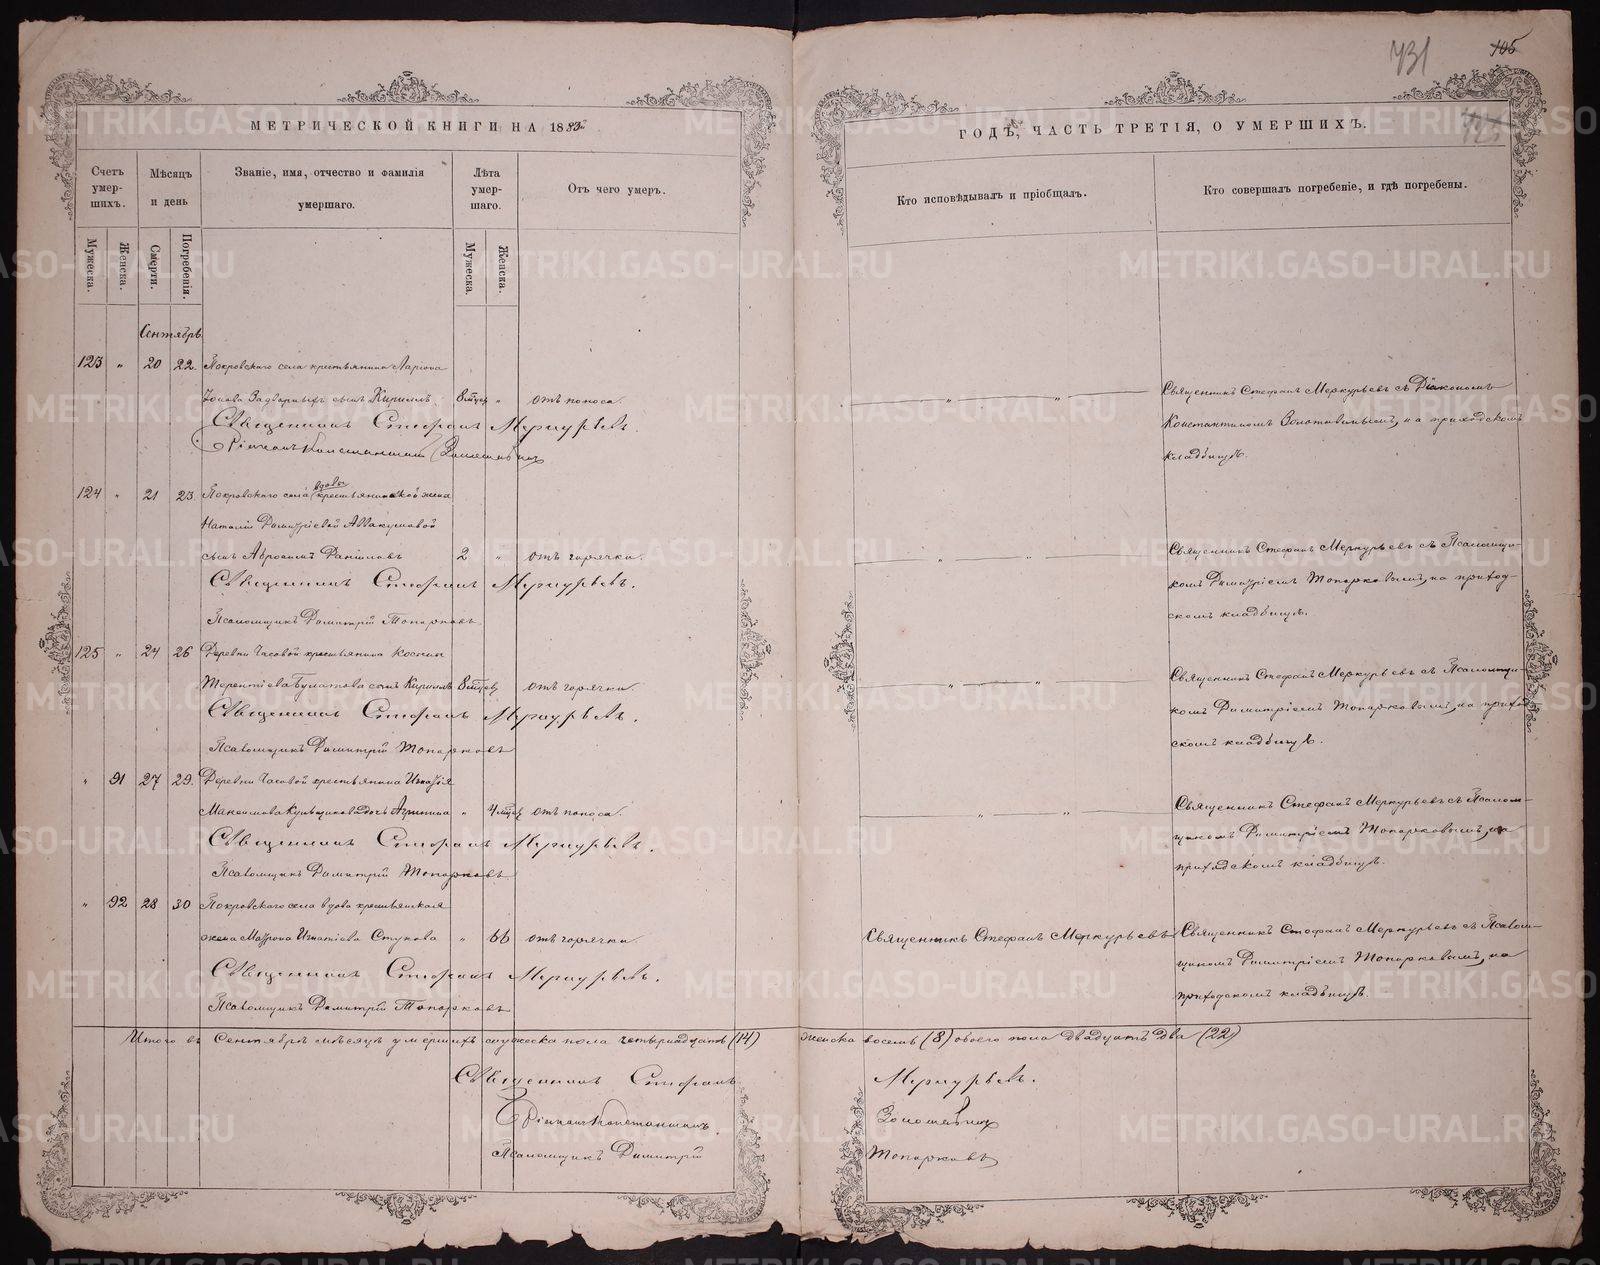 731
105
МЕТРИЧЕСКОЙ КНИГИ НА 1883
ГОДЪ, ЧАСТЬ ТРЕТІЯ, О УМЕРШИХЪ.
Счетъ умер-шихъ.
Мѣсяцъ и день
Званіе, имя, отчество и фамилія умершаго.
Лѣта умер-шаго.
Отъ чего умеръ.
Кто исповѣдывалъ и пріобщалъ.
Кто совершалъ погребеніе, и гдѣ погребены.
Мужеска.
Женска.
Смерти.
Погребенія.
Мужеска.
Женска.
Сентябрь
123 " 20 22. Покровскаго села крестьянина Ларіона
Іонова Задворныхъ сынъ Кириллъ. 8 мѣсяц " отъ поноса.
Священникъ Стефанъ Меркурьевъ съ Діакономъ
Константиномъ Золотавинымъ, на приходскомъ
кладбищѣ.
Священникъ Стефанъ Меркурьевъ.
Діаконъ Константинъ Золотавинъ
124 " 21 23. Покровскаго села вдовы крестьянской жены
Наталіи Димитріевой Аввакумовой
сынъ Авраамъ Даніиловъ 2 " отъ горячки.
Священникъ Стефанъ Меркурьевъ съ Псаломщи-
комъ Димитріемъ Топорковымъ, на приход-
скомъ кладбищѣ.
Священникъ Стефанъ Меркурьевъ.
Псаломщикъ Димитрій Топорковъ
125 " 24 26 Деревни Часовой крестьянина Космы
Терентіева Булатова сынъ Кириллъ 8 мѣсяц отъ горячки.
Священникъ Стефанъ Меркурьевъ съ Псаломщи-
комъ Димитріемъ Топорковымъ, на приход-
скомъ кладбищѣ.
Священникъ Стефанъ Меркурьевъ.
Псаломщикъ Димитрій Топорковъ
" 91 27 29. Деревни Часовой крестьянина Игнатія
Максимова Кузнецова дочь Агрипина " 4 мѣсяц отъ поноса.
Священникъ Стефанъ Меркурьевъ съ Псалом-
щикомъ Димитріемъ Топорковымъ, на
приходскомъ кладбищѣ.
Священникъ Стефанъ Меркурьевъ.
Псаломщикъ Димитрій Топорковъ
" 92 28 30 Покровскаго села вдова крестьянская
жена Матрона Игнатіева Стукова " 66 отъ горячки.
Священникъ Стефанъ Меркурьевъ
Священникъ Стефанъ Меркурьевъ съ Псалом-
щикомъ Димитріемъ Топорковымъ, на
приходскомъ кладбищѣ.
Священникъ Стефанъ Меркурьевъ.
Псаломщикъ Димитрій Топорковъ
Итого въ Сентябрѣ мѣсяцѣ умершихъ мужеска пола четырнадцать (14) женска восемь (8) обоего пола двадцать два (22)
Священникъ Стефанъ Меркурьевъ.
Діаконъ Константинъ Золотавинъ
Псаломщикъ Димитрій Топорковъ
METRIKI.GASO-URAL.RU